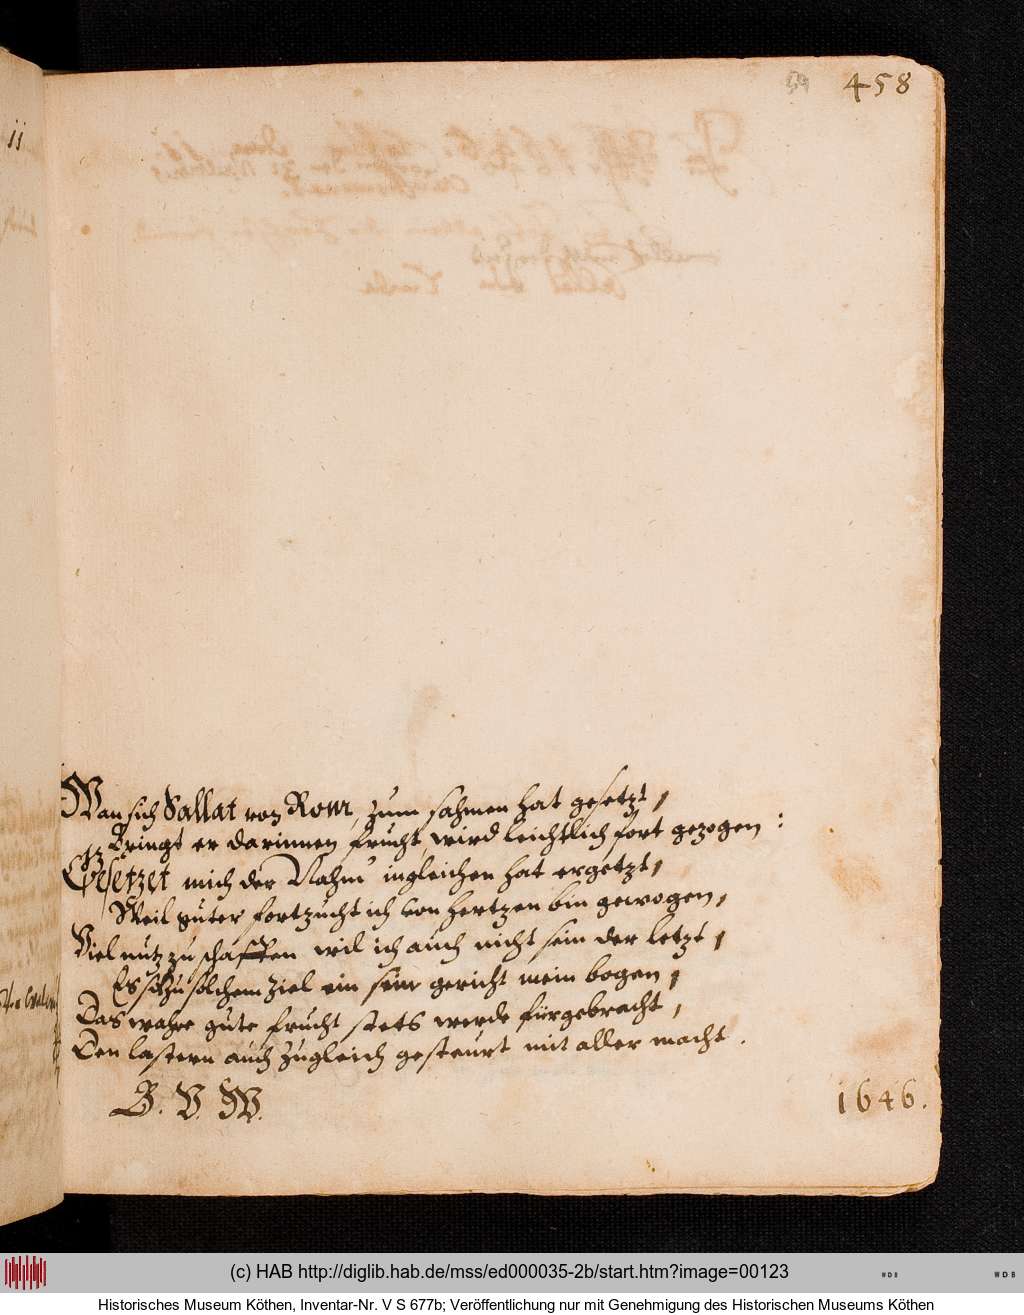 458
Wan sich Sallat von Rom, zum sahmen hat gesetzt,
Bringt er darinnen frucht, wird leichtlich fort gezogen:
Ergetzet mich der Nahm' ingleichen hat ergetzt,
Weil guter fortzucht ich von hertzen bin gewogen,
Viel nutz zu schaffen wil ich auch nicht sein der letzt,
Es ist zu solchem ziel ein sein gericht mein bogen,
Das wahre gute frucht stets werde fürgebracht,
Den lastern auch zugleich gesteurt mit aller macht.
B. V. W.
1646.
(c) HAB http://diglib.hab.de/mss/ed000035-2b/start.htm?image=00123
WDB
WDB
Historisches Museum Köthen, Inventar-Nr. V S 677b; Veröffentlichung nur mit Genehmigung des Historischen Museums Köthen